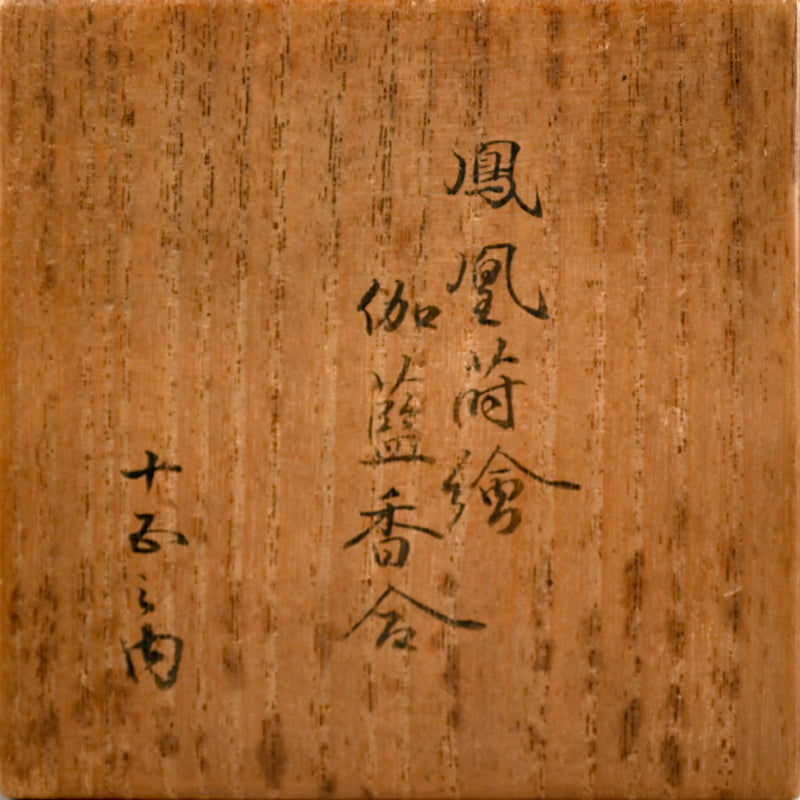 鳳凰蒔繪
伽藍香合
十五之内